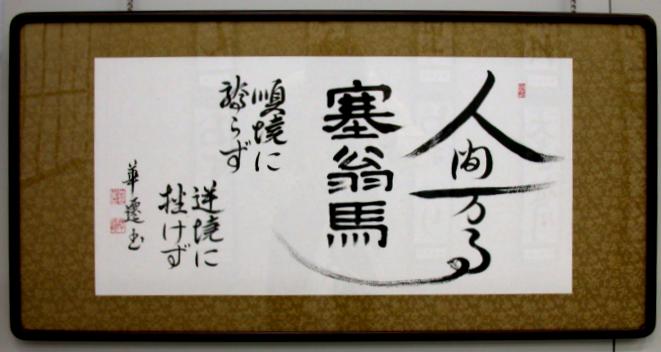 人間万事
塞翁馬
順境に
驕らず
逆境に
挫けず
華蓮書